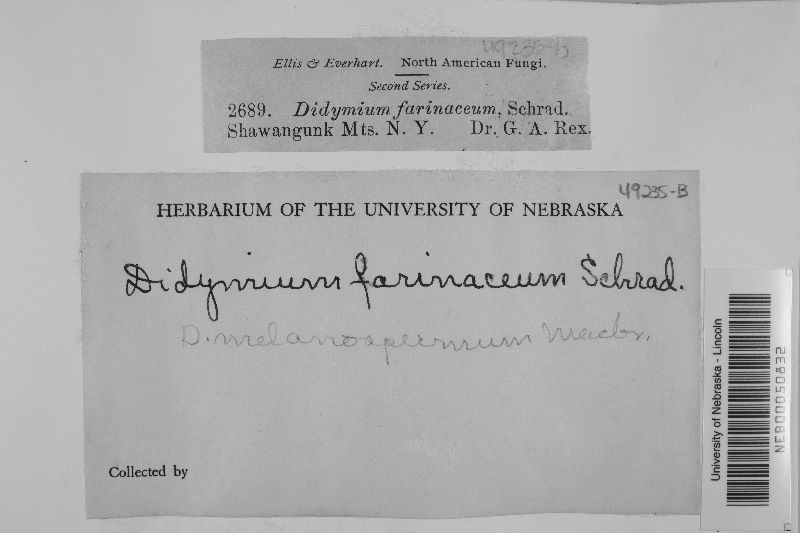 49235-b
Ellis & Everhart. North American Fungi.
Second Series.
2689. Didymium farinaceum, Schrad.
Shawangunk Mts. N. Y. Dr. G. A. Rex.
49235-B
HERBARIUM OF THE UNIVERSITY OF NEBRASKA
Didymium farinaceum Schrad.
D. melanospermum Macbr.
Collected by
University of Nebraska - Lincoln
NEB00050832